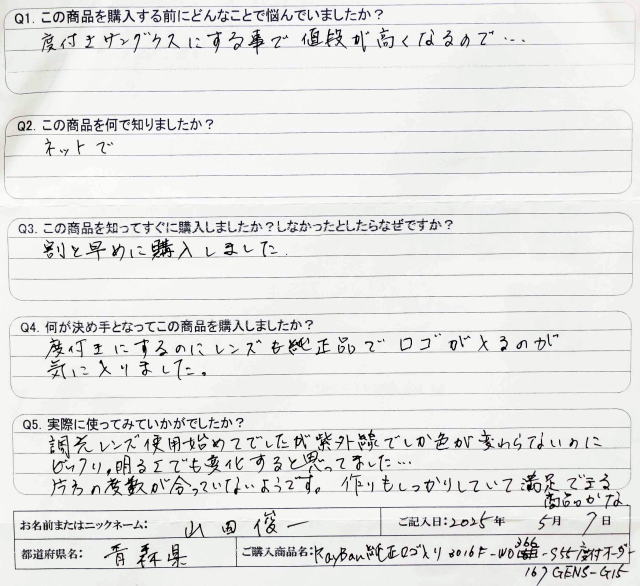 Q1. この商品を購入する前にどんなことで悩んでいましたか？
度付きサングラスにする事で値段が高くなるので…
Q2. この商品を何で知りましたか？
ネットで
Q3. この商品を知ってすぐに購入しましたか？しなかったとしたらなぜですか？
割と早めに購入しました.
Q4. 何が決め手となってこの商品を購入しましたか？
度付きにするのにレンズも純正品でロゴが入るのが
気に入りました。
Q5. 実際に使ってみていかがでしたか？
調光レンズ使用始めてでしたが紫外線でしか色が変わらないのに
ビックリ。明るさでも変化すると思ってました…
片方の度数が合っていないようです。作りもしっかりしていて満足できる
商品かな
お名前またはニックネーム： 山田俊一 ご記入日：2025年 5月 7日
都道府県名： 青森県 ご購入商品名：RayBan純正ロゴ入り 3016F-W0366-S55度付オーダー
167 GEN5-G15